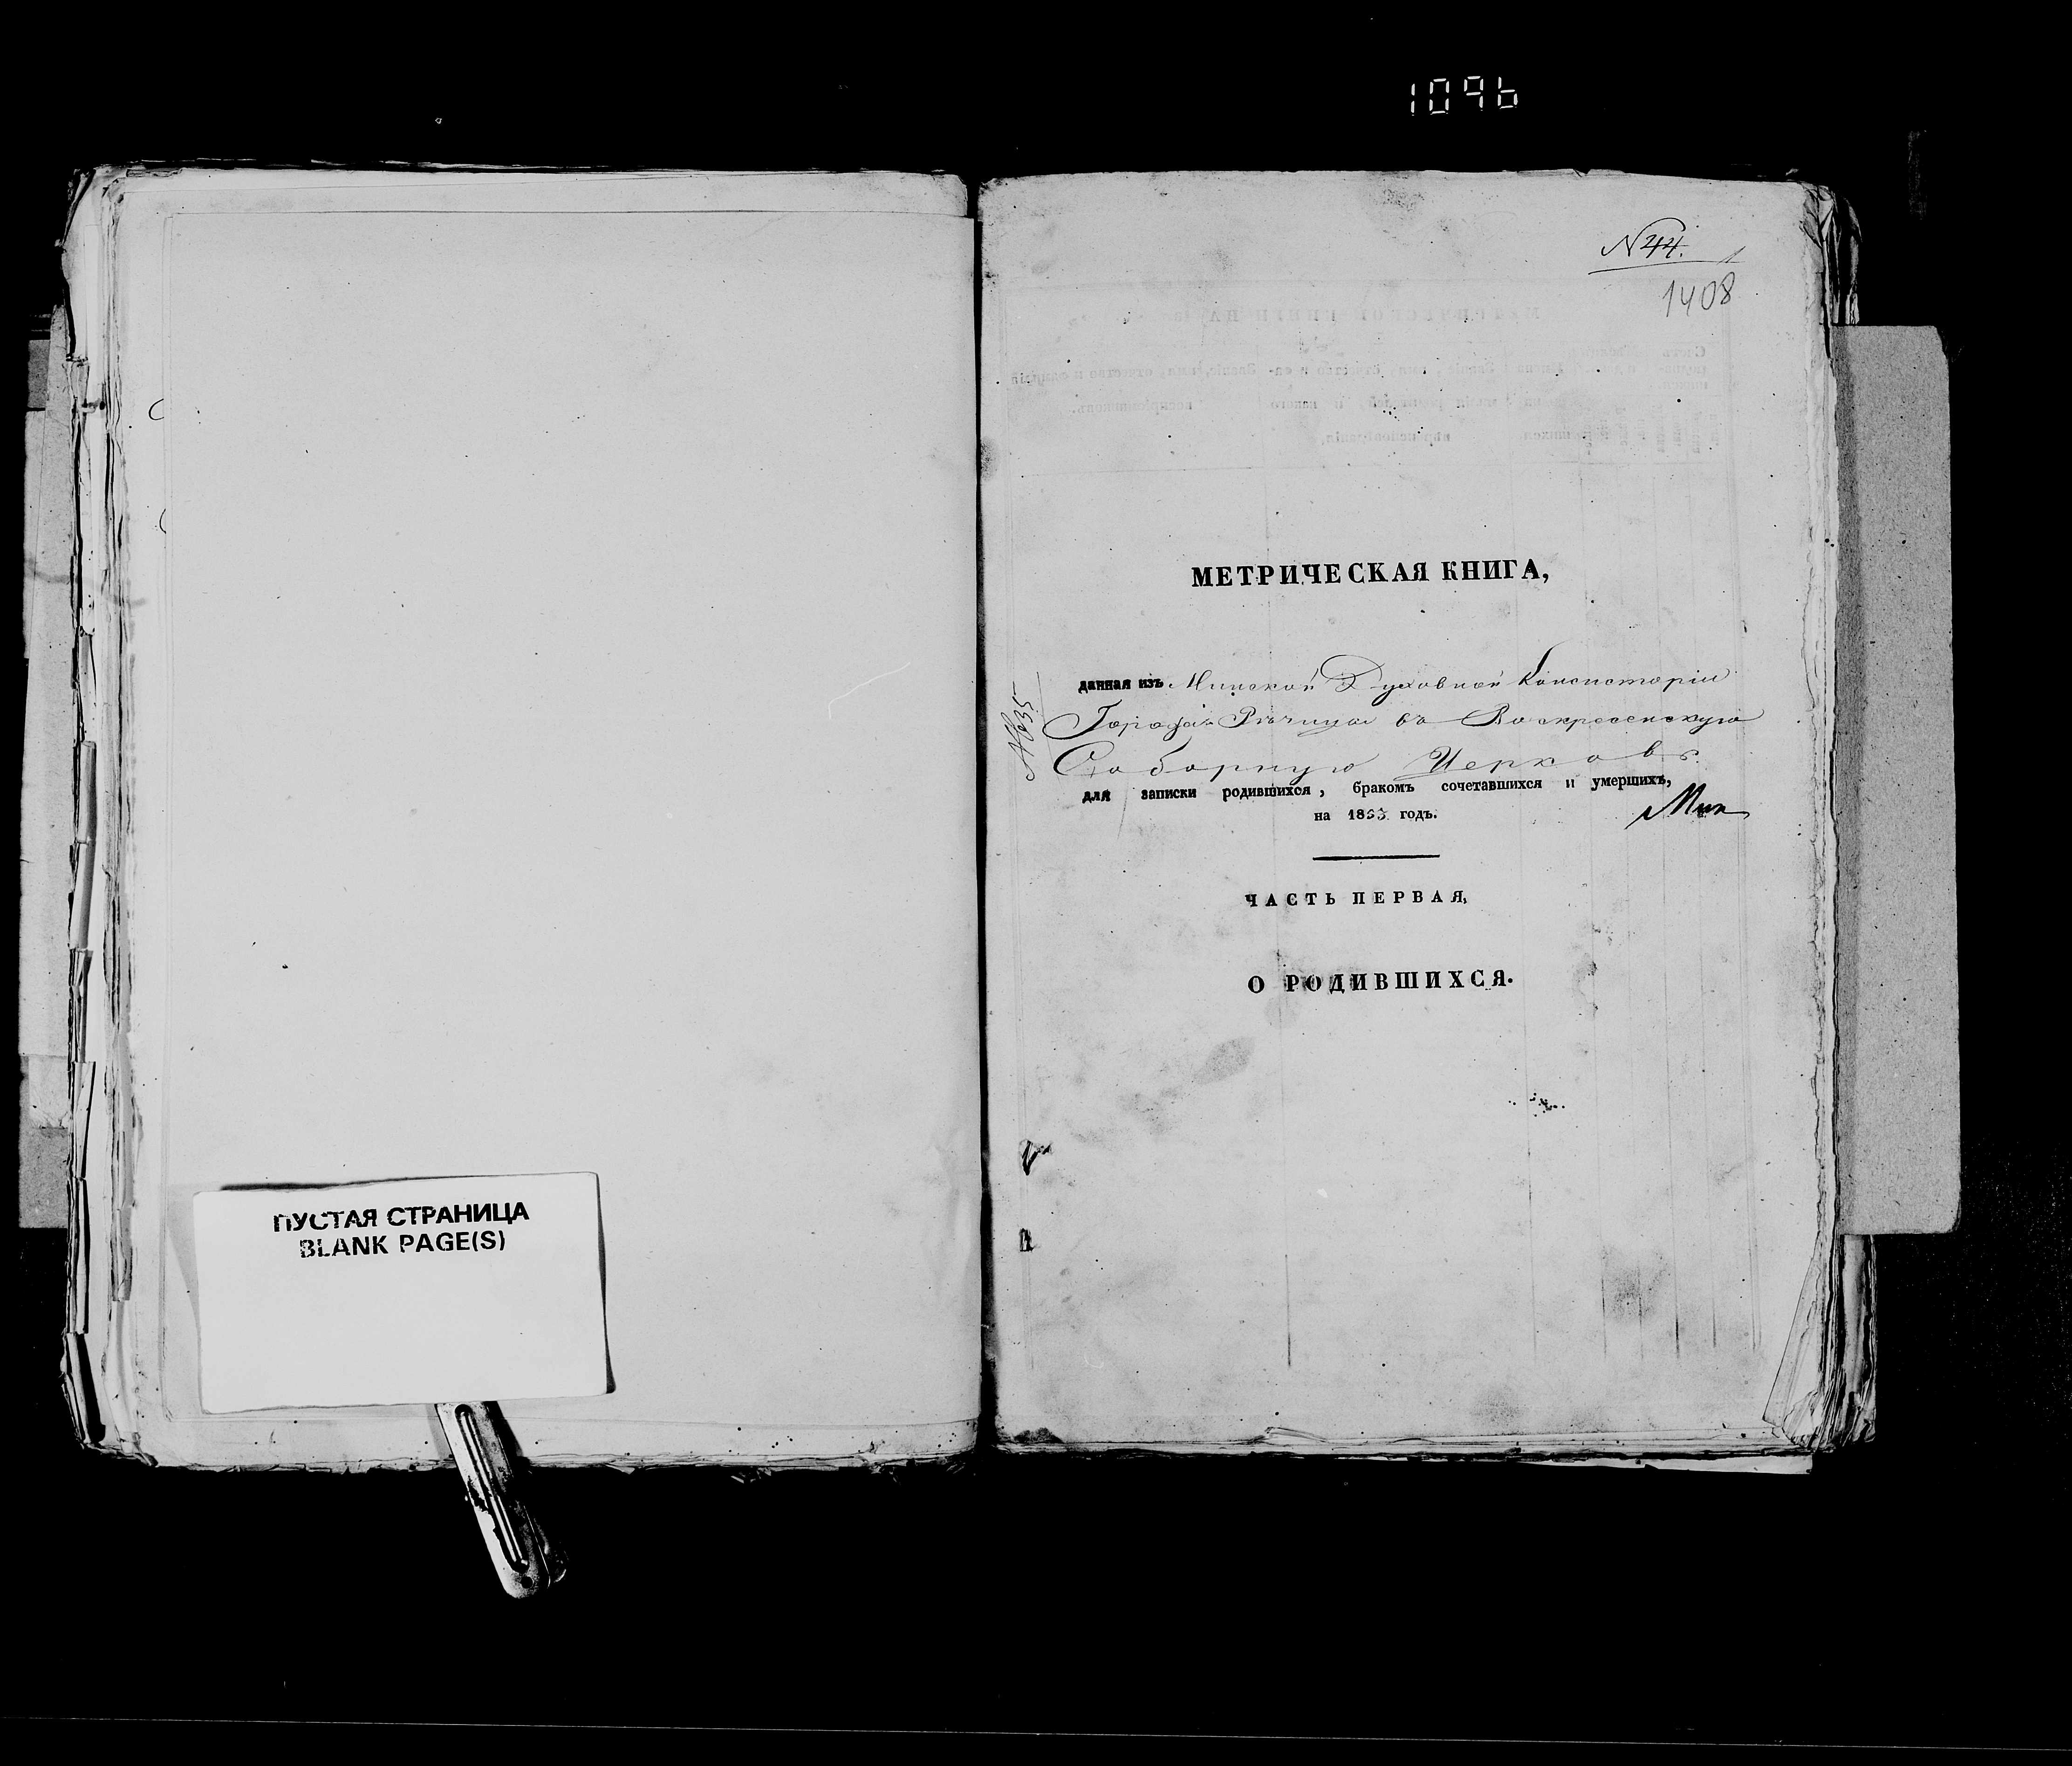 1096
N 44.
1408
МЕТРИЧЕСКАЯ КНИГА,
данная изъ Минской Духовной Консисторіи
Города Рѣчицы въ Воскресенскую
Соборную Церковь
для записки родившихся, бракомъ сочетавшихся и умершихъ,
на 1853 годъ.
ЧАСТЬ ПЕРВАЯ,
О РОДИВШИХСЯ.
ПУСТАЯ СТРАНИЦА
BLANK PAGE(S)